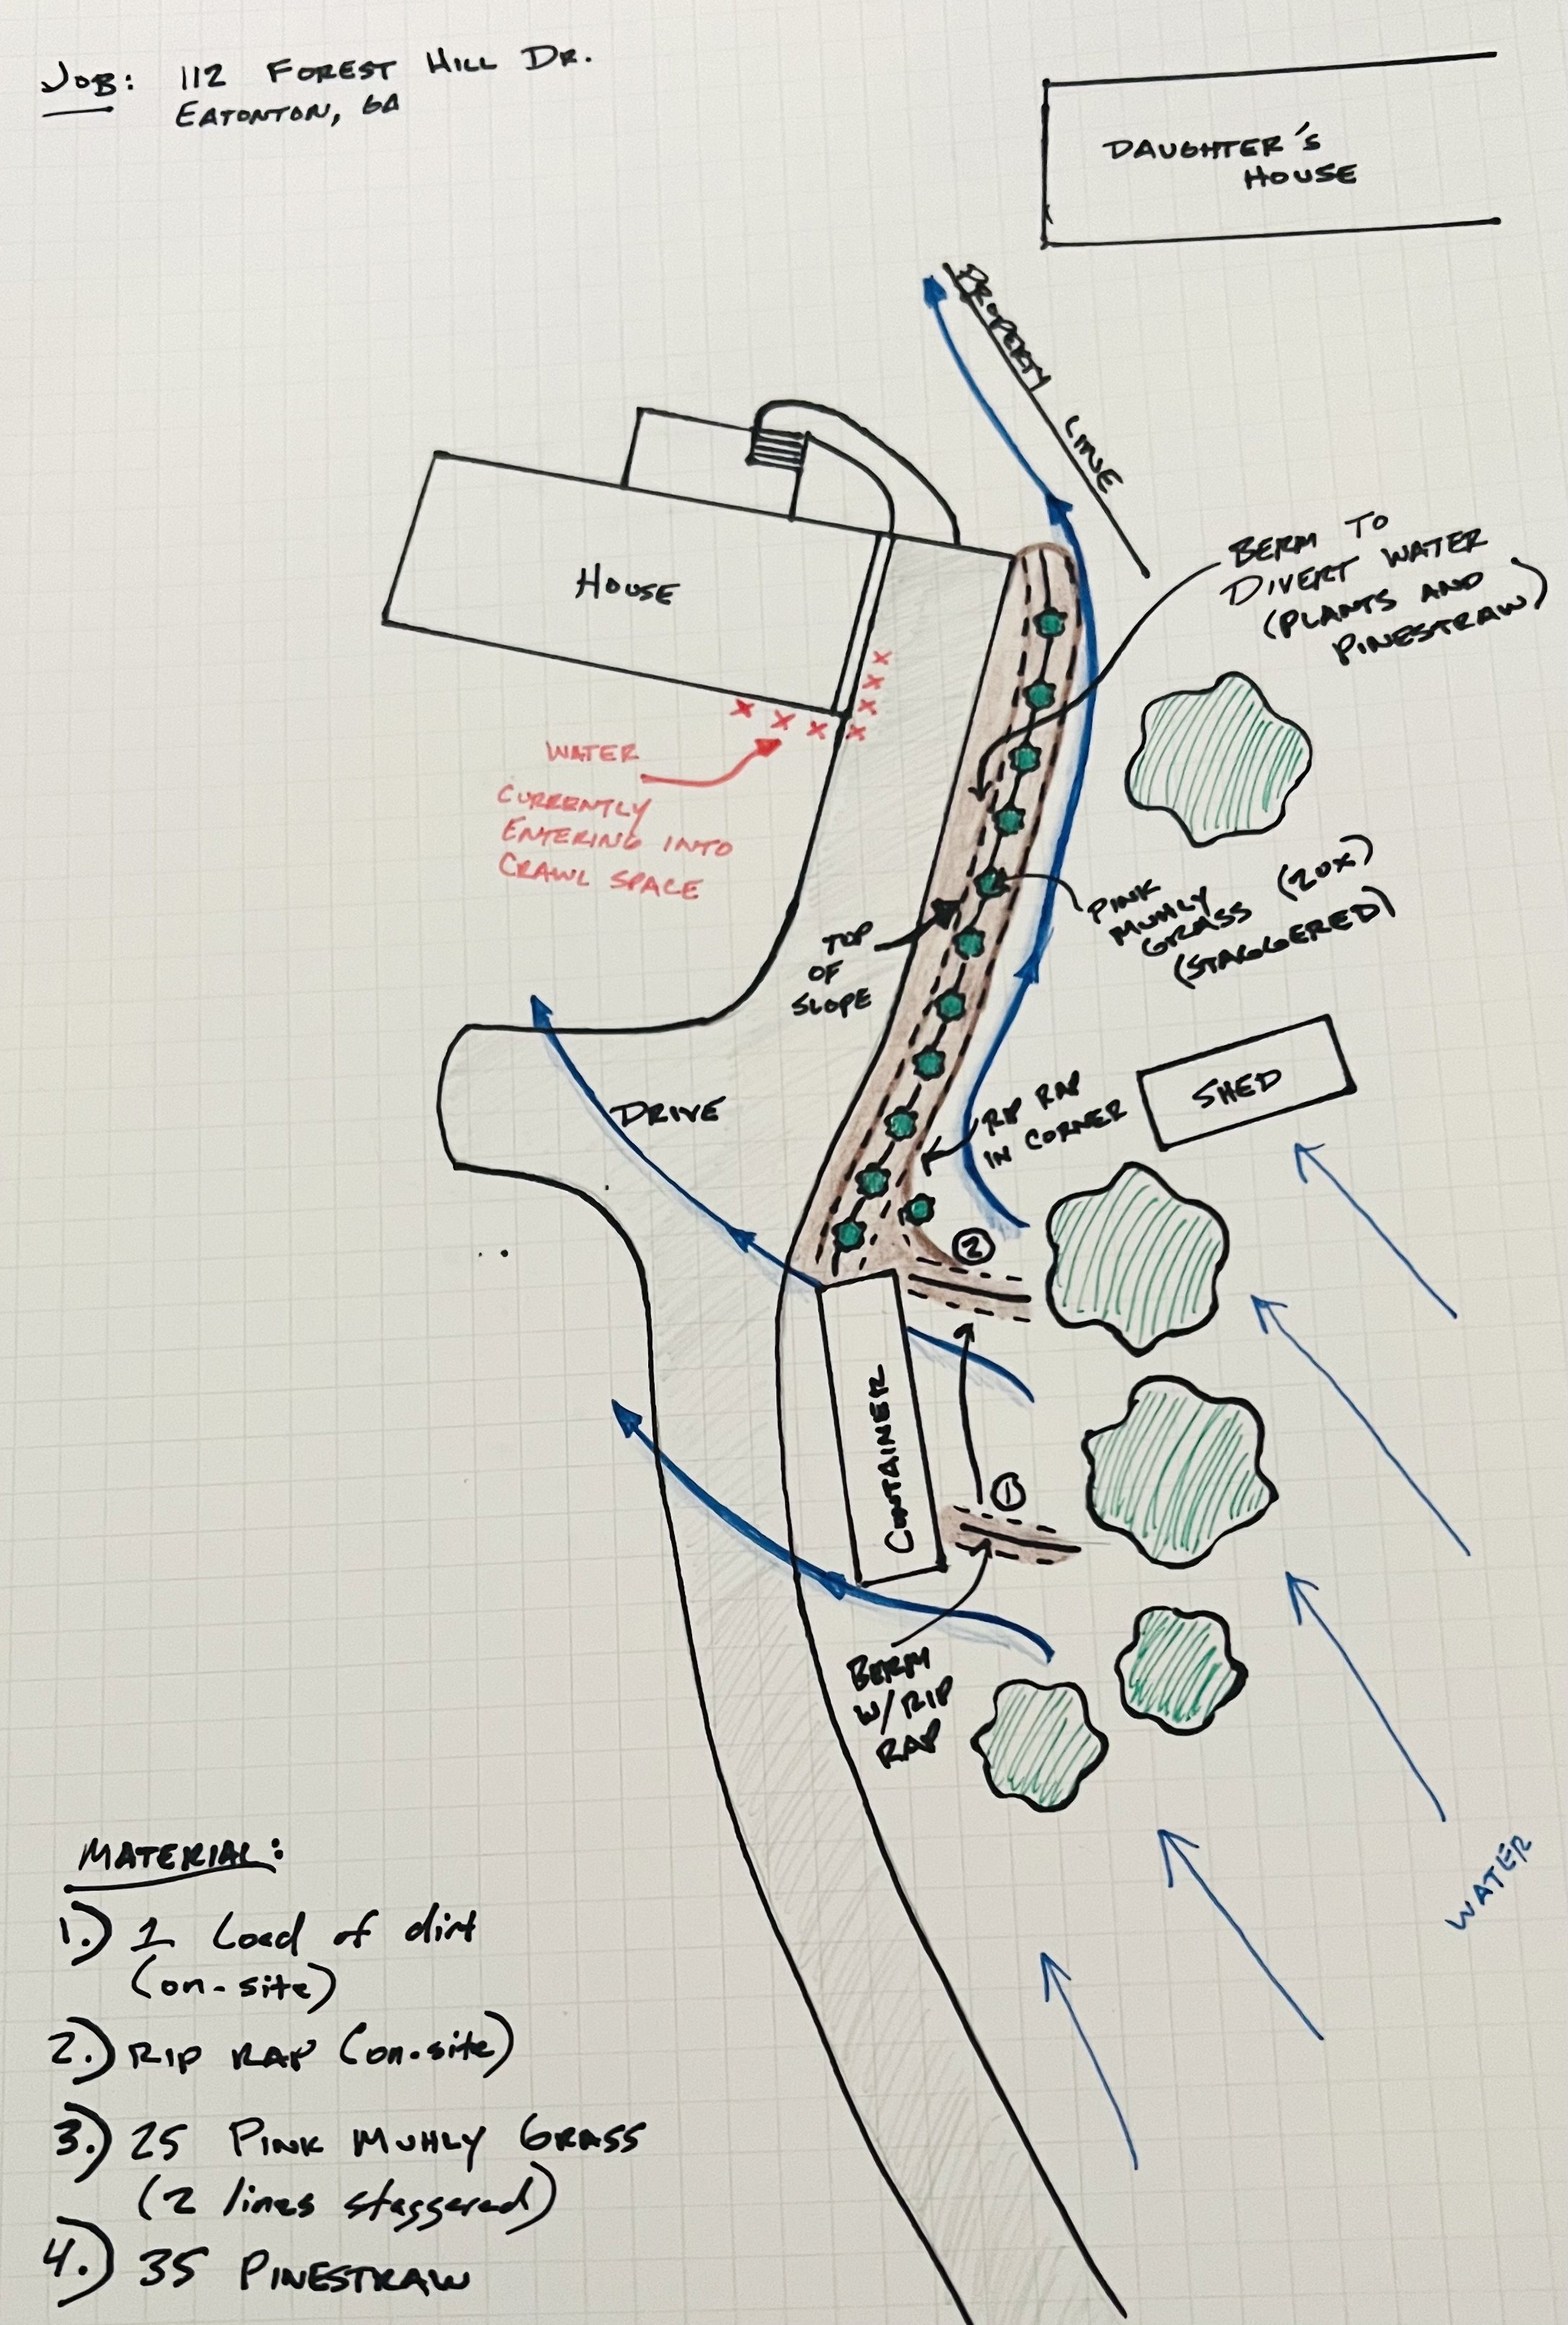 JOB: 112 FOREST HILL DR.
EATONTON, GA
DAUGHTER'S
HOUSE
PROPERTY LINE
BERM TO
DIVERT WATER
(PLANTS AND
PINESTRAW)
HOUSE
WATER
CURRENTLY
ENTERING INTO
CRAWL SPACE
PINK
MUHLY
GRASS (20X)
(STAGGERED)
TOP
OF
SLOPE
RIP RAP
IN CORNER
SHED
DRIVE
2
CONTAINER
1
BERM
W/RIP
RAP
WATER
MATERIAL:
1.) 1 Load of dirt
(on-site)
2.) RIP RAP (on-site)
3.) 25 PINK MUHLY GRASS
(2 lines staggered)
4.) 35 PINESTRAW